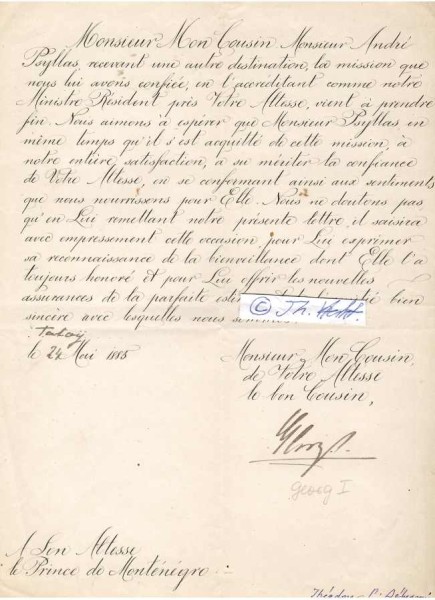 Monsieur Mon Cousin. Monsieur André
Psyllas, recevant une autre destination, la mission que
nous lui avons confiée, en l'accréditant comme notre
Ministre Résident près Votre Altesse, vient à prendre
fin. Nous aimons à espérer que Monsieur Psyllas en
même temps qu'il s'est acquitté de cette mission, à
notre entière satisfaction, a su mériter la confiance
de Votre Altesse, en se conformant ainsi aux sentiments
que nous nourrissons pour Elle. Nous ne doutons pas
qu'en Lui remettant notre présente lettre, il saisira
avec empressement cette occasion pour Lui exprimer
sa reconnaissance de la bienveillance dont Elle l'a
toujours honoré et pour Lui offrir les nouvelles
assurances de la parfaite bien
sincère avec lesquelles nous
© Th. Hecht.
le 24 Mai 1885
Monsieur Mon Cousin,
de Votre Altesse
le bon Cousin,
Georg I
A Son Altesse
le Prince de Monténégro
Théodore P.